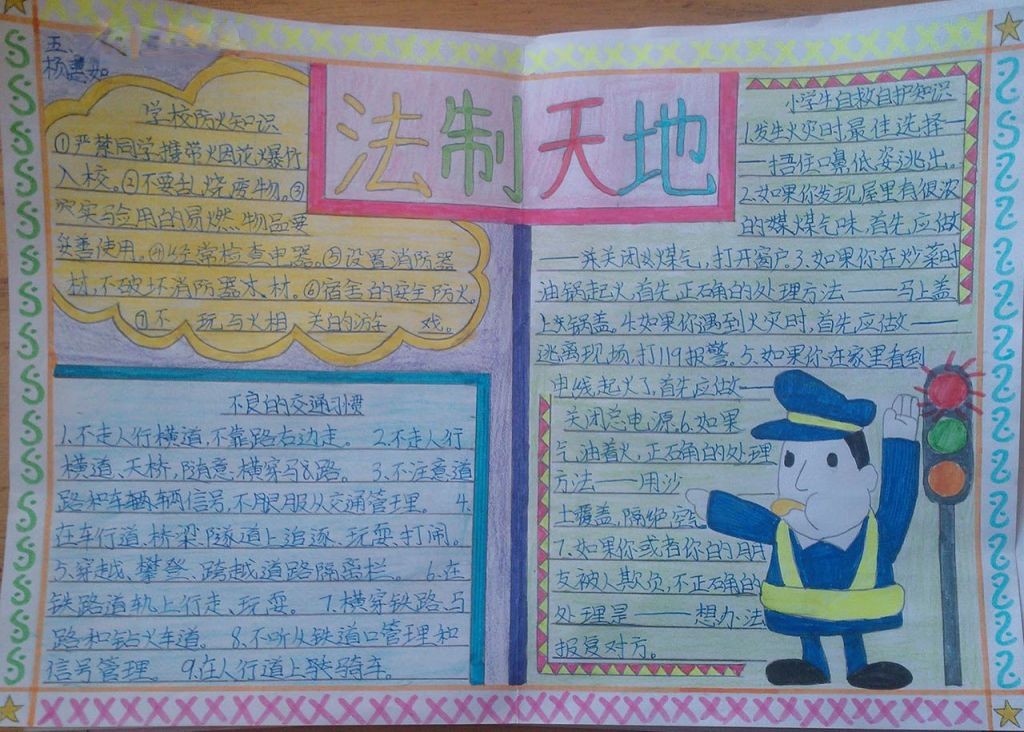 五、
杨惠如
法制天地
学校防火知识
①严禁同学携带烟花爆竹
入校。②不要乱烧废物。③
实验用的易燃物品要
妥善使用。④经常检查电器。⑤设置消防器
材,不破坏消防器材。⑥宿舍的安全防火。
⑦不玩与火相关的游戏。
不良的交通习惯
1.不走人行横道,不靠路右边走。 2.不走人行
横道、天桥,随意横穿马路。 3.不注意道
路和车辆信号,不服从交通管理。 4.
在车行道、桥梁、隧道上追逐、玩耍、打闹。
5.穿越、攀登、跨越道路隔离栏。 6.在
铁路道轨上行走、玩耍。 7.横穿铁路、马
路和钻火车道。 8.不听从铁道口管理和
信号管理。 9.在人行道上骑车。
小学生自救自护知识
1.发生火灾时最佳选择—
—捂住口鼻低姿逃出。
2.如果你发现屋里有很浓
的煤气味,首先应做
——关闭煤气,打开窗户。3.如果你在炒菜时
油锅起火,首先正确的处理方法——马上盖
上锅盖。4.如果你遇到火灾时,首先应做——
逃离现场,打119报警。5.如果你在家里看到
电线起火了,首先应做——
关闭总电源.6.如果
气油着火,正确的处理
方法——用沙
土覆盖,隔绝空气
7.如果你或者你的朋
友被人欺负,不正确的
处理是——想办法
报复对方。